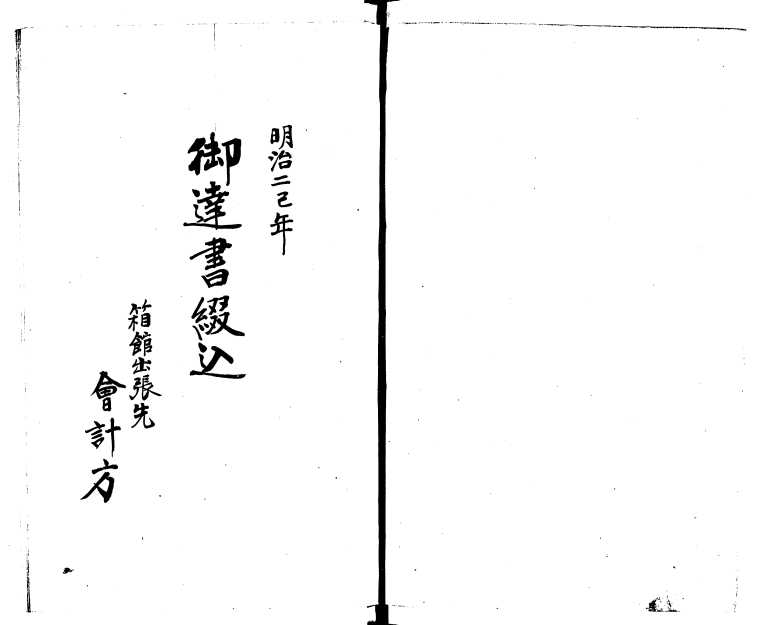 明治二己年
御達書綴込
箱館出張先
會計方